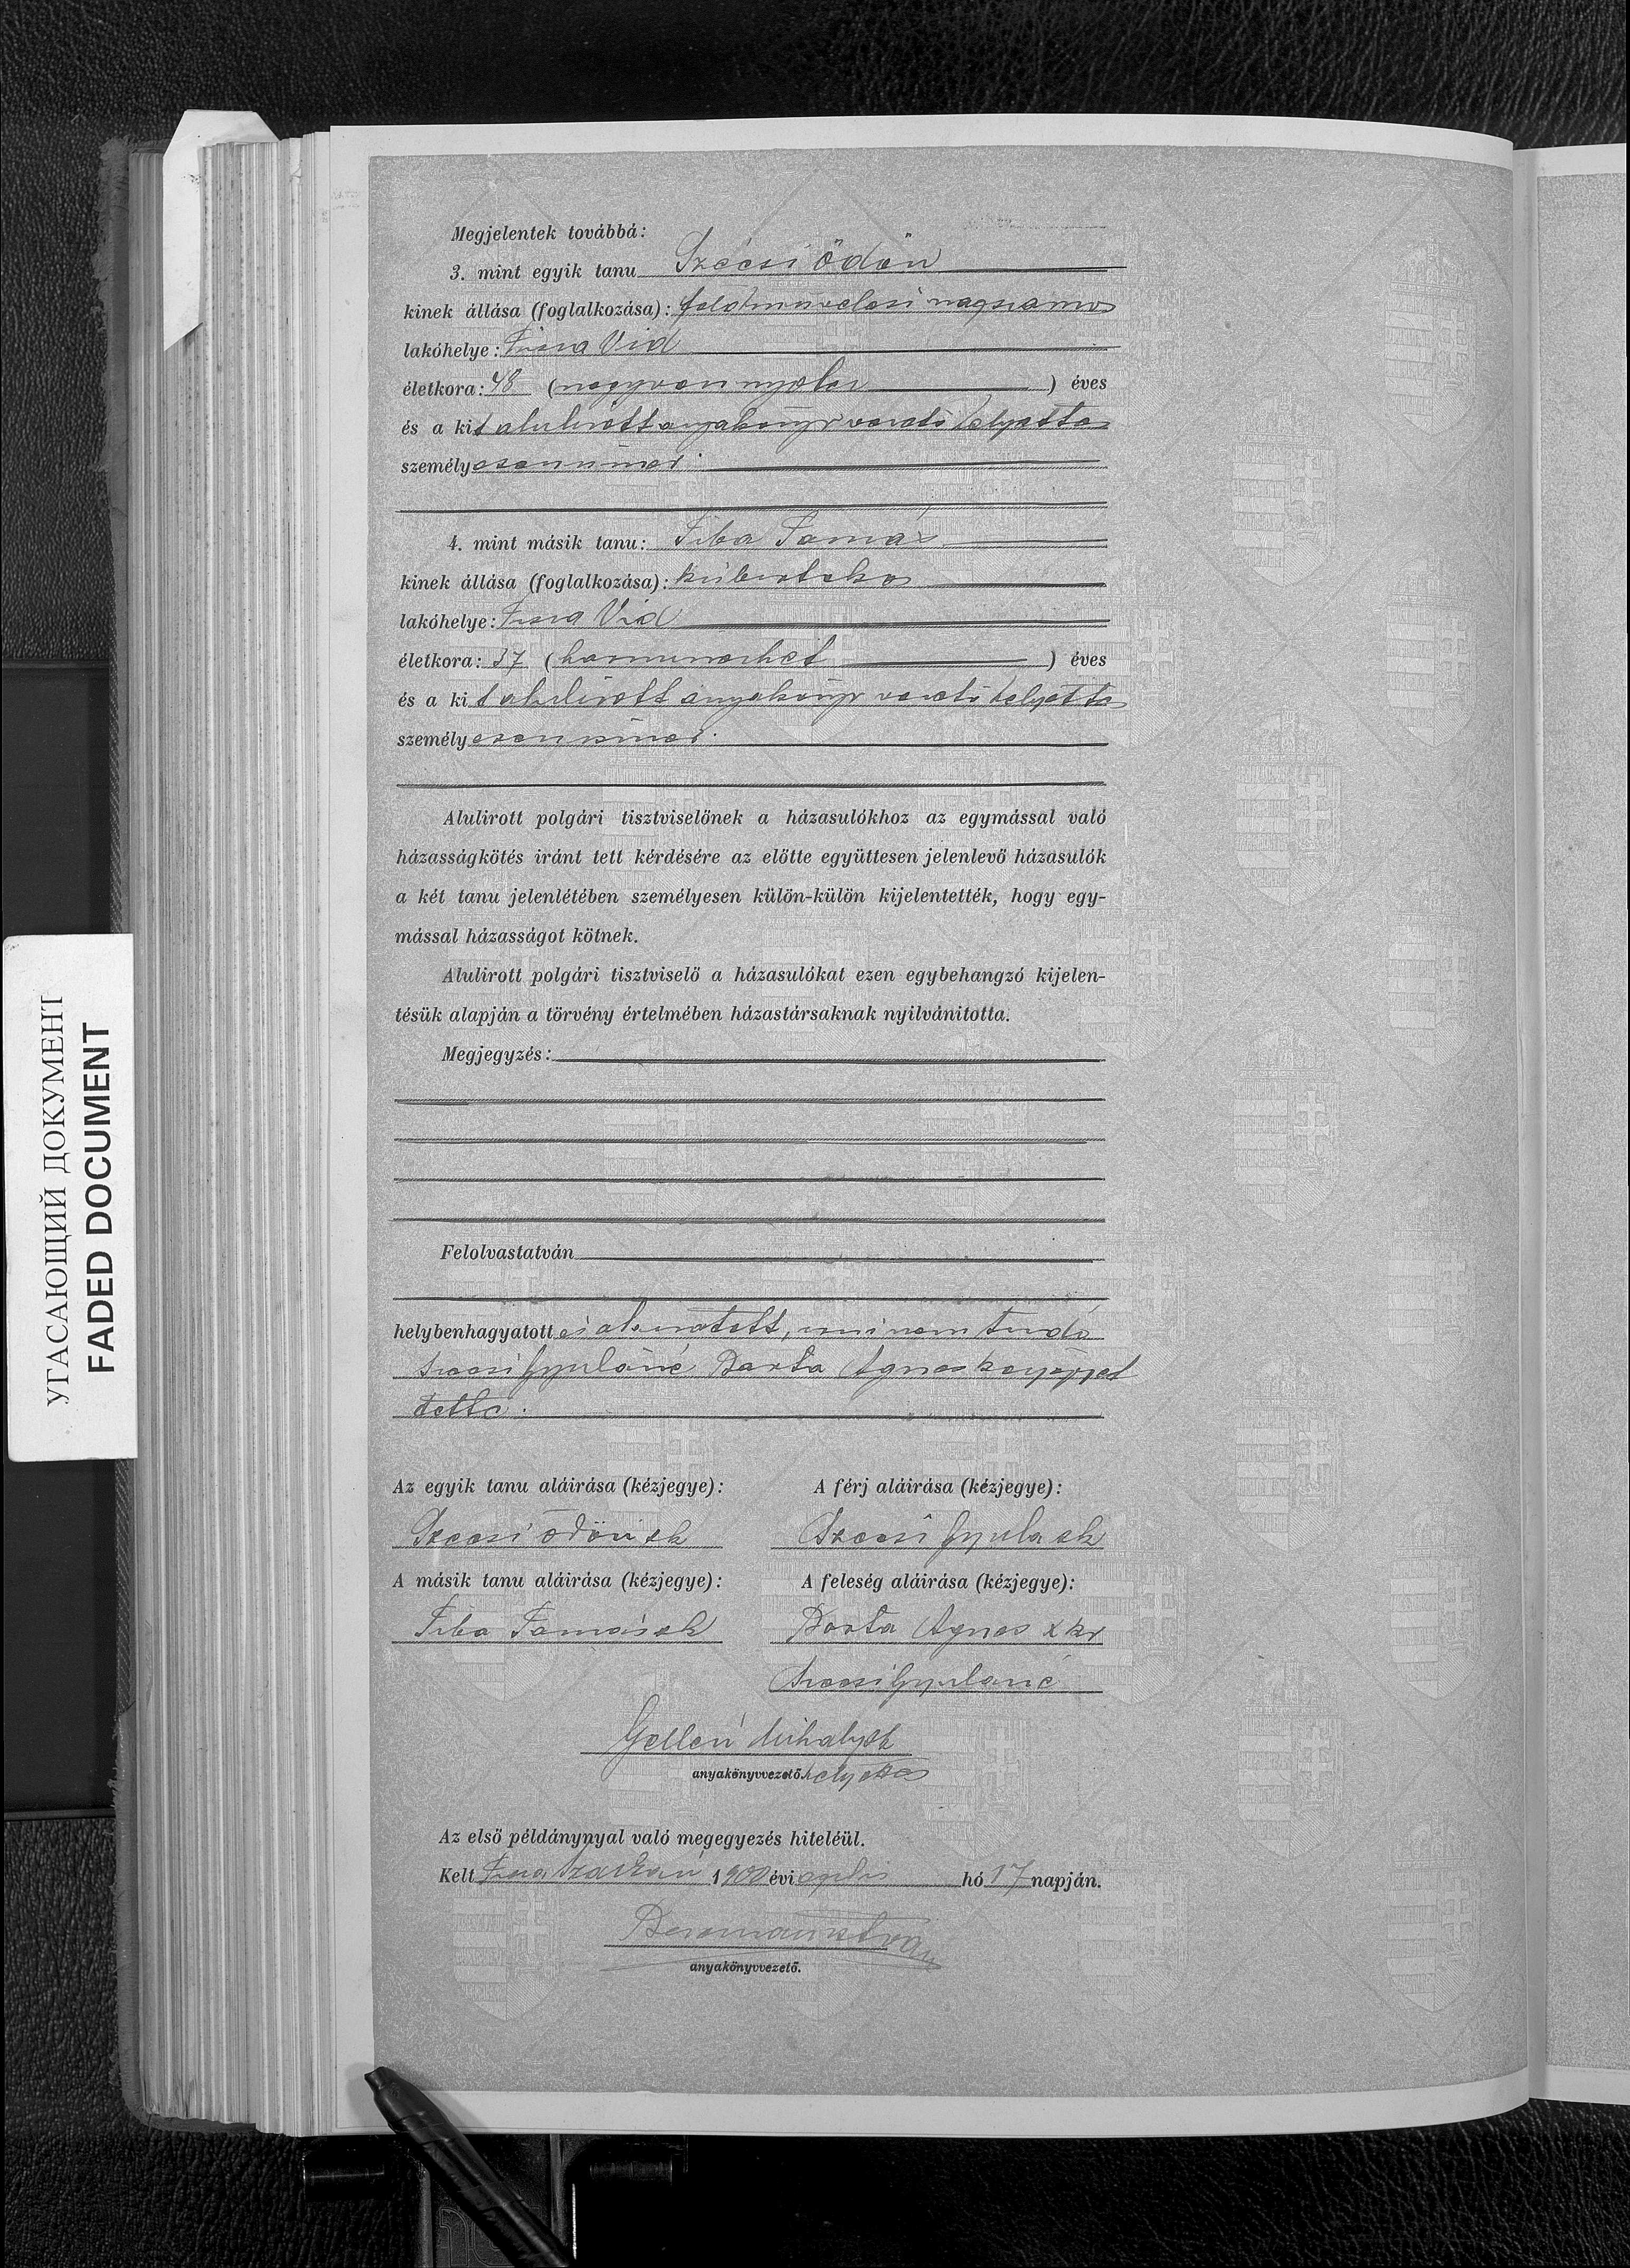 Megjelentek továbbá:
3. mint egyik tanu Szécsi Ödön
kinek állása (foglalkozása): földművelési napszámos
lakóhelye: Tisza Vid
életkora: 48 (negyvennyolcz) éves
és a kit alulirott anyakönyvvezető helyettes
személyesen ismer.
4. mint másik tanu: Tiba Tamás
kinek állása (foglalkozása): kisbirtokos
lakóhelye: Tisza Vid
életkora: 37 (harminczhét) éves
és a kit alulirott anyakönyvvezető helyettes
személyesen ismer.
Alulirott polgári tisztviselőnek a házasulókhoz az egymással való
házasságkötés iránt tett kérdésére az előtte együttesen jelenlevő házasulók
a két tanu jelenlétében személyesen külön-külön kijelentették, hogy egy-
mással házasságot kötnek.
Alulirott polgári tisztviselő a házasulókat ezen egybehangzó kijelen-
tésük alapján a törvény értelmében házastársaknak nyilvánitotta.
Megjegyzés:
Felolvastatván
helybenhagyatott és aláiratott, irni nem tudó
Szécsi Gyuláné Barta Ágnes kézjegyet
tette.
Az egyik tanu aláirása (kézjegye):
A férj aláirása (kézjegye):
Szécsi Ödön sk
Szécsi Gyula sk
A másik tanu aláirása (kézjegye):
A feleség aláirása (kézjegye):
Tiba Tamás sk
Barta Ágnes x kv
Szécsi Gyuláné
Gellén Mihály sk
anyakönyvvezető. helyettes
Az első példánynyal való megegyezés hiteléül.
Kelt Tisza 1900 évi április hó 17 napján.
István
anyakönyvvezető.
УГАСАЮЩИЙ ДОКУМЕНТ
FADED DOCUMENT